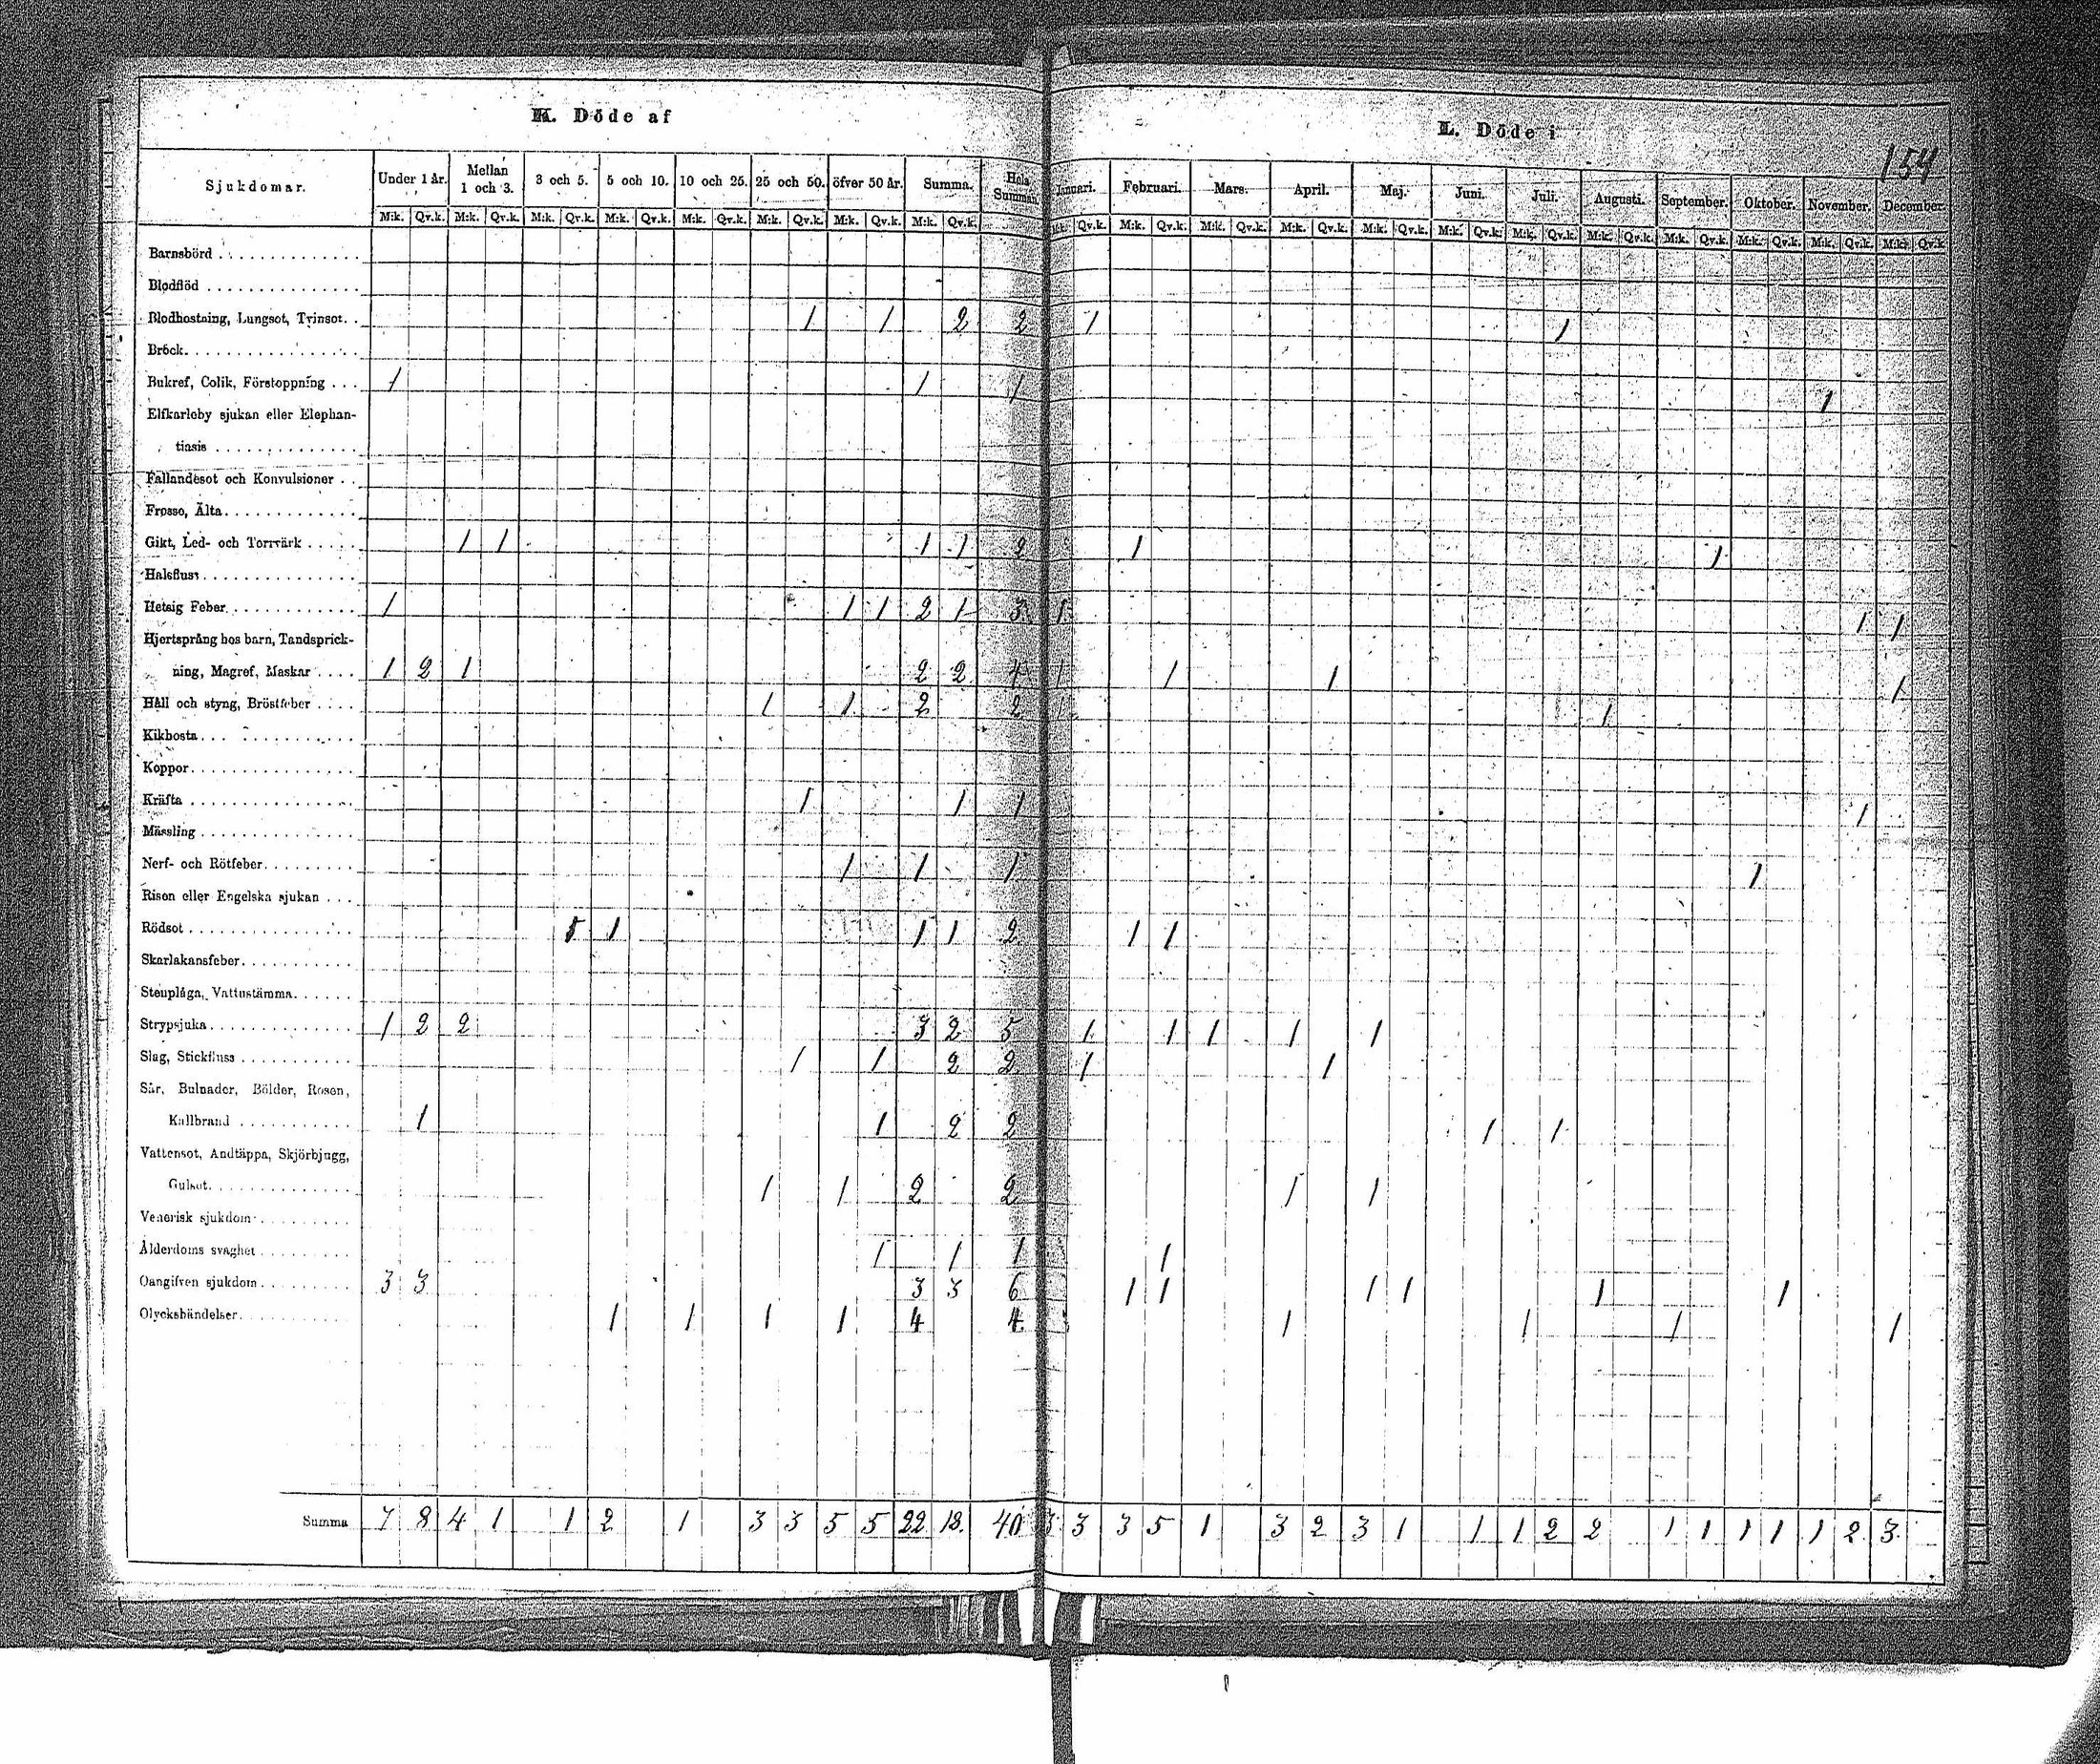 K. Döde af
L. Döde i
154
Sjukdomar. Under 1 år. Mellan 1 och 3. 3 och 5. 5 och 10. 10 och 25. 25 och 50. öfver 50 år. Summa. Hela Summan. Januari. Februari. Mars. April. Maj. Juni. Juli. Augusti. September. Oktober. November. December.
M:k. Qv.k. M:k. Qv.k. M:k. Qv.k. M:k. Qv.k. M:k. Qv.k. M:k. Qv.k. M:k. Qv.k. M:k. Qv.k. M:k. Qv.k. M:k. Qv.k. M:k. Qv.k. M:k. Qv.k. M:k. Qv.k. M:k. Qv.k. M:k. Qv.k. M:k. Qv.k. M:k. Qv.k. M:k. Qv.k. M:k. Qv.k. M:k. Qv.k.
Barnsbörd
Blodflöd
Blodhostning, Lungsot, Tvinsot. 1 1 2 2 1 1
Bråck
Bukref, Colik, Förstoppning 1 1 1 1
Elfkarleby sjukan eller Elephan-
tiasis
Fallandesot och Konvulsioner
Frosso, Älta
Gikt, Led- och Torrvärk 1 1 1 1 2 1 1
Halsfluss
Hetsig Feber 1 1 1 2 1 3 1 1 1
Hjertsprång hos barn, Tandsprick-
ning, Magref, Maskar 1 2 1 2 2 4 1 1 1 1
Håll och styng, Bröstfeber 1 1 2 2 1 1
Kikhosta
Koppor
Kräfta 1 1 1 1
Mässling
Nerf- och Rötfeber 1 1 1 1
Risen eller Engelska sjukan
Rödsot 1 1 1 1 2 1 1
Skarlakansfeber
Stenplåga, Vattustämma
Strypsjuka 1 2 2 3 2 5 1 1 1 1 1
Slag, Stickfluss 1 1 2 2 1 1
Sår, Bulnader, Bölder, Rosen,
Kallbrand 1 1 2 2 1 1
Vattensot, Andtäppa, Skjörbjugg,
Gulsot 1 1 2 2 1 1
Venerisk sjukdom
Ålderdoms svaghet 1 1 1 1
Oangifven sjukdom 3 3 3 3 6 1 1 1 1 1 1
Olyckshändelser 1 1 1 1 4 4 1 1 1 1
Summa 7 8 4 1 1 2 1 3 3 5 5 22 18. 40 3 3 3 5 1 3 2 3 1 1 1 2 2 1 1 1 1 1 2 3